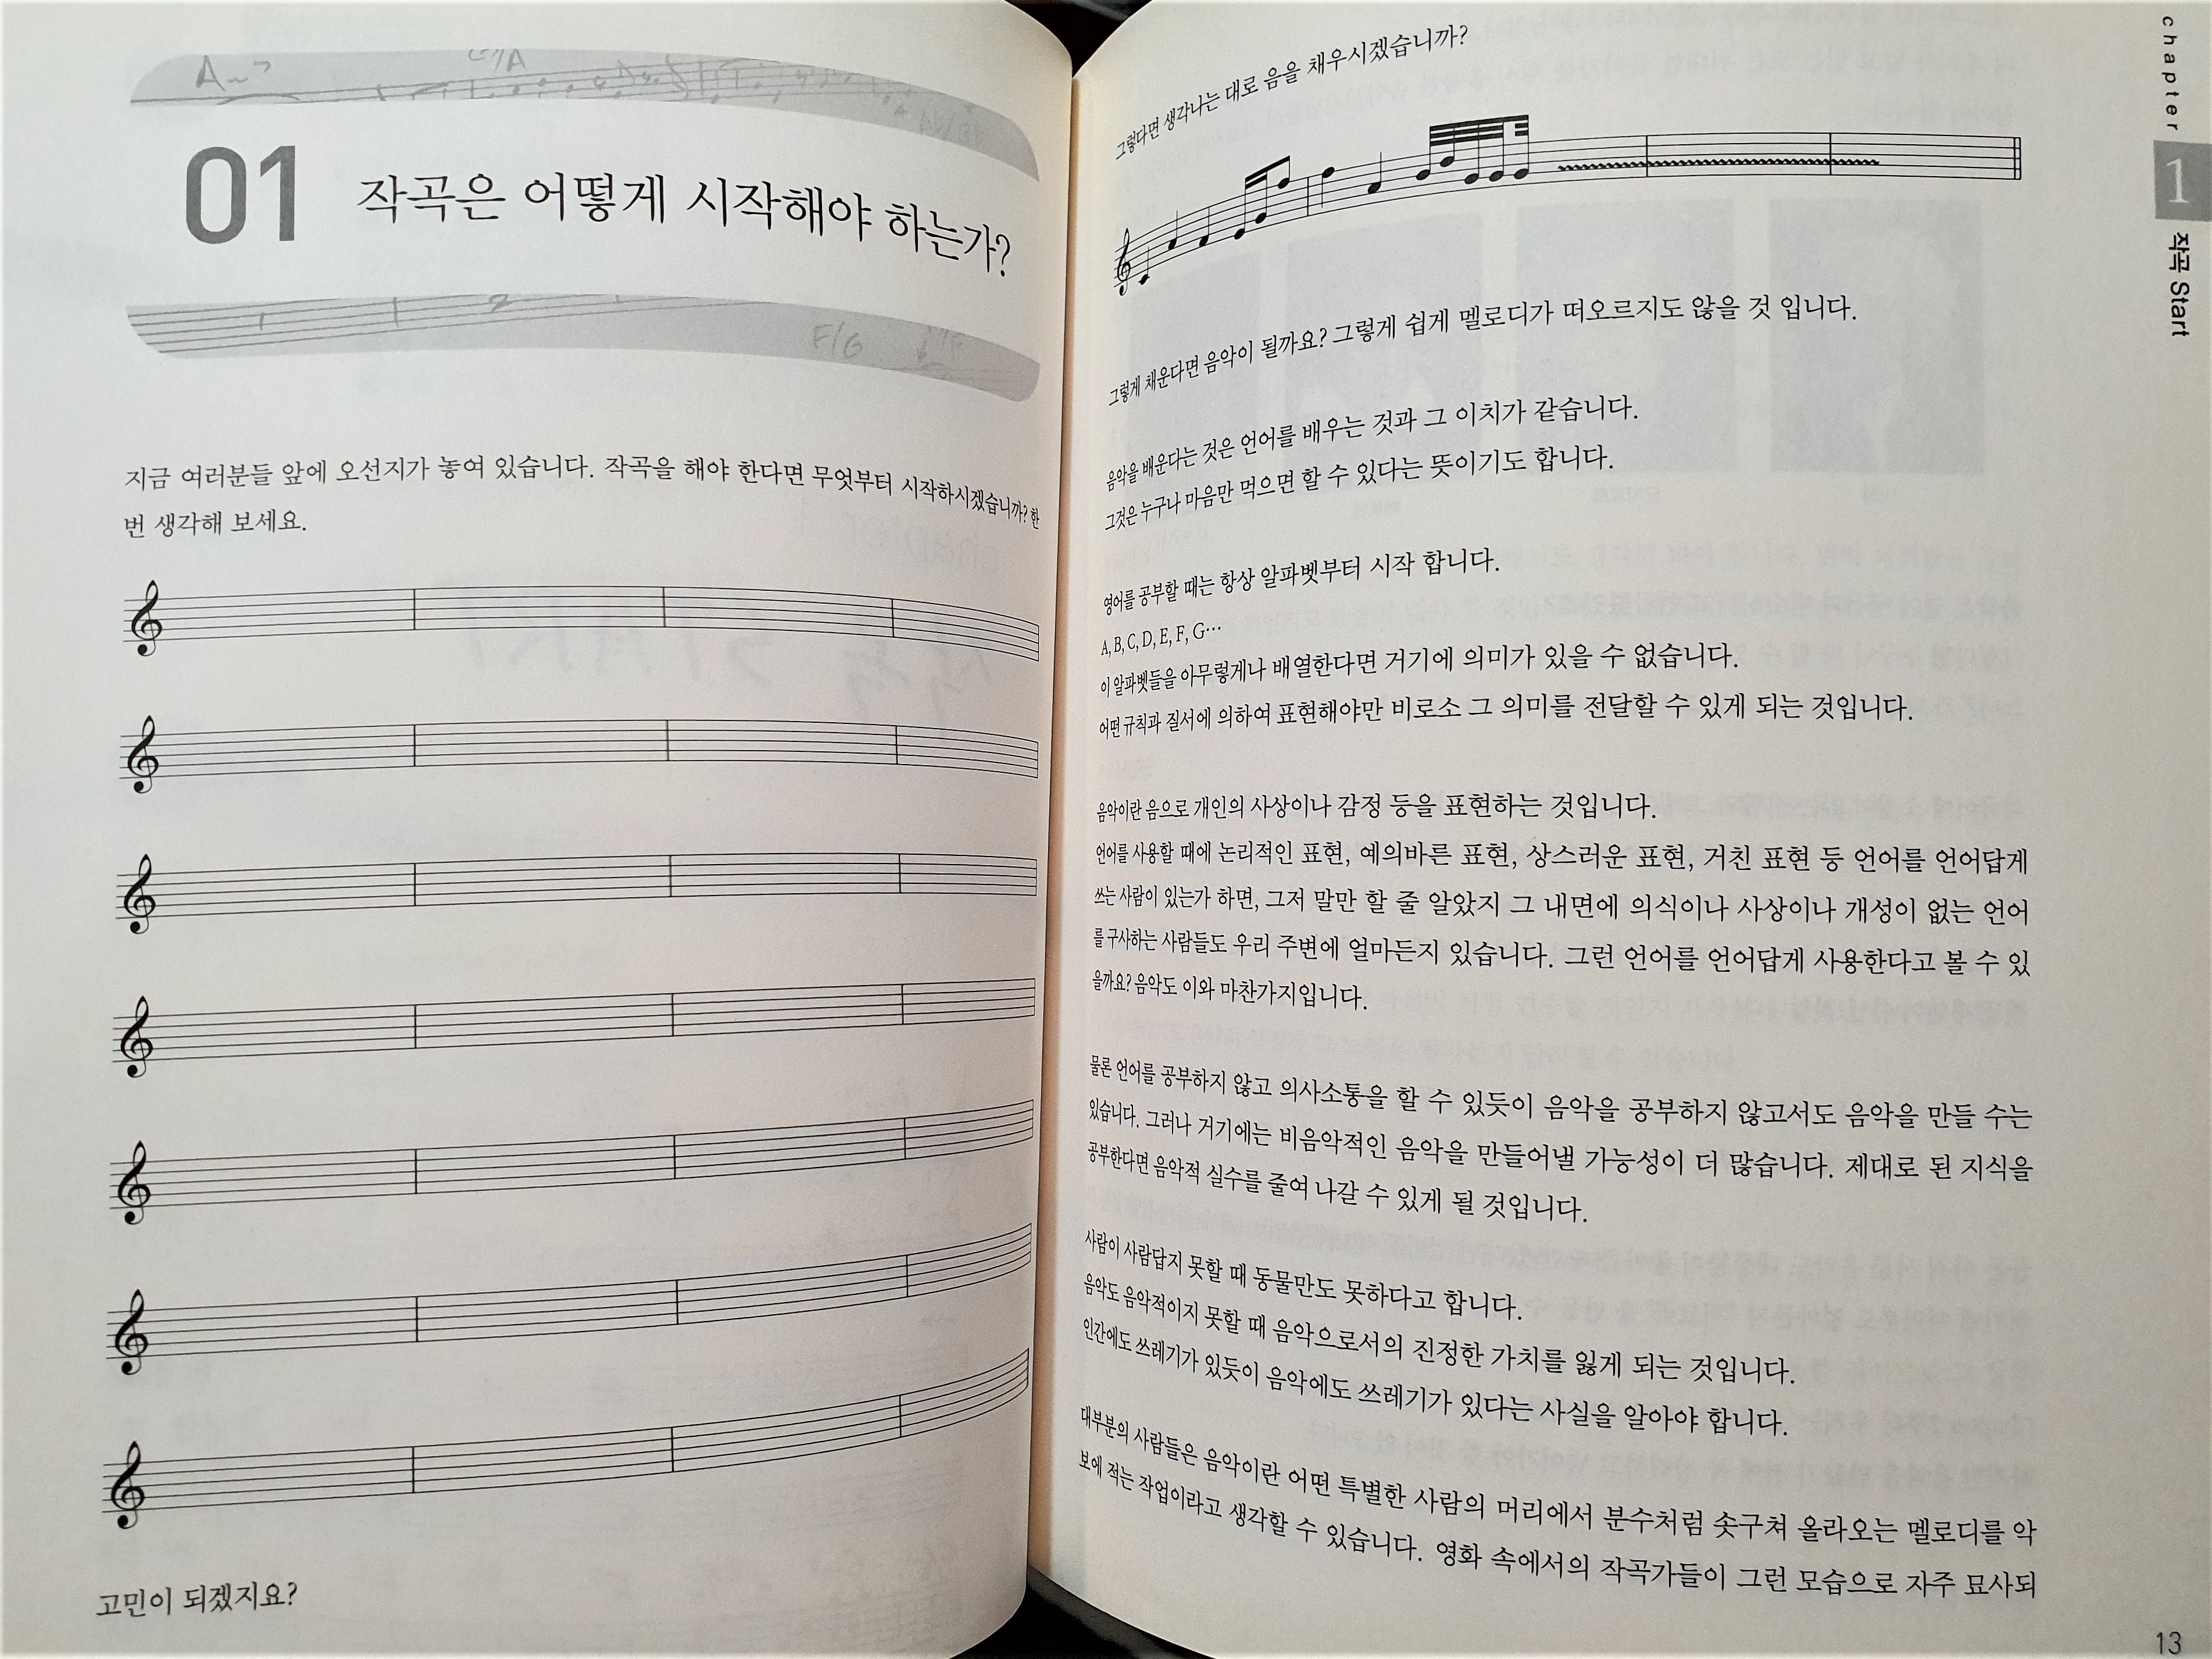 01 작곡은 어떻게 시작해야 하는가?
지금 여러분들 앞에 오선지가 놓여 있습니다. 작곡을 해야 한다면 무엇부터 시작하시겠습니까? 한
번 생각해 보세요.
고민이 되겠지요?
chapter 1 작곡 Start
그렇다면 생각나는 대로 음을 채우시겠습니까?
그렇게 채운다면 음악이 될까요? 그렇게 쉽게 멜로디가 떠오르지도 않을 것 입니다.
음악을 배운다는 것은 언어를 배우는 것과 그 이치가 같습니다.
그것은 누구나 마음만 먹으면 할 수 있다는 뜻이기도 합니다.
영어를 공부할 때는 항상 알파벳부터 시작 합니다.
A, B, C, D, E, F, G…
이 알파벳들을 아무렇게나 배열한다면 거기에 의미가 있을 수 없습니다.
어떤 규칙과 질서에 의하여 표현해야만 비로소 그 의미를 전달할 수 있게 되는 것입니다.
음악이란 음으로 개인의 사상이나 감정 등을 표현하는 것입니다.
언어를 사용할 때에 논리적인 표현, 예의바른 표현, 상스러운 표현, 거친 표현 등 언어를 언어답게
쓰는 사람이 있는가 하면, 그저 말만 할 줄 알았지 그 내면에 의식이나 사상이나 개성이 없는 언어
를 구사하는 사람들도 우리 주변에 얼마든지 있습니다. 그런 언어를 언어답게 사용한다고 볼 수 있
을까요? 음악도 이와 마찬가지입니다.
물론 언어를 공부하지 않고 의사소통을 할 수 있듯이 음악을 공부하지 않고서도 음악을 만들 수는
있습니다. 그러나 거기에는 비음악적인 음악을 만들어낼 가능성이 더 많습니다. 제대로 된 지식을
공부한다면 음악적 실수를 줄여 나갈 수 있게 될 것입니다.
사람이 사람답지 못할 때 동물만도 못하다고 합니다.
음악도 음악적이지 못할 때 음악으로서의 진정한 가치를 잃게 되는 것입니다.
인간에도 쓰레기가 있듯이 음악에도 쓰레기가 있다는 사실을 알아야 합니다.
대부분의 사람들은 음악이란 어떤 특별한 사람의 머리에서 분수처럼 솟구쳐 올라오는 멜로디를 악
보에 적는 작업이라고 생각할 수 있습니다. 영화 속에서의 작곡가들이 그런 모습으로 자주 묘사되
13